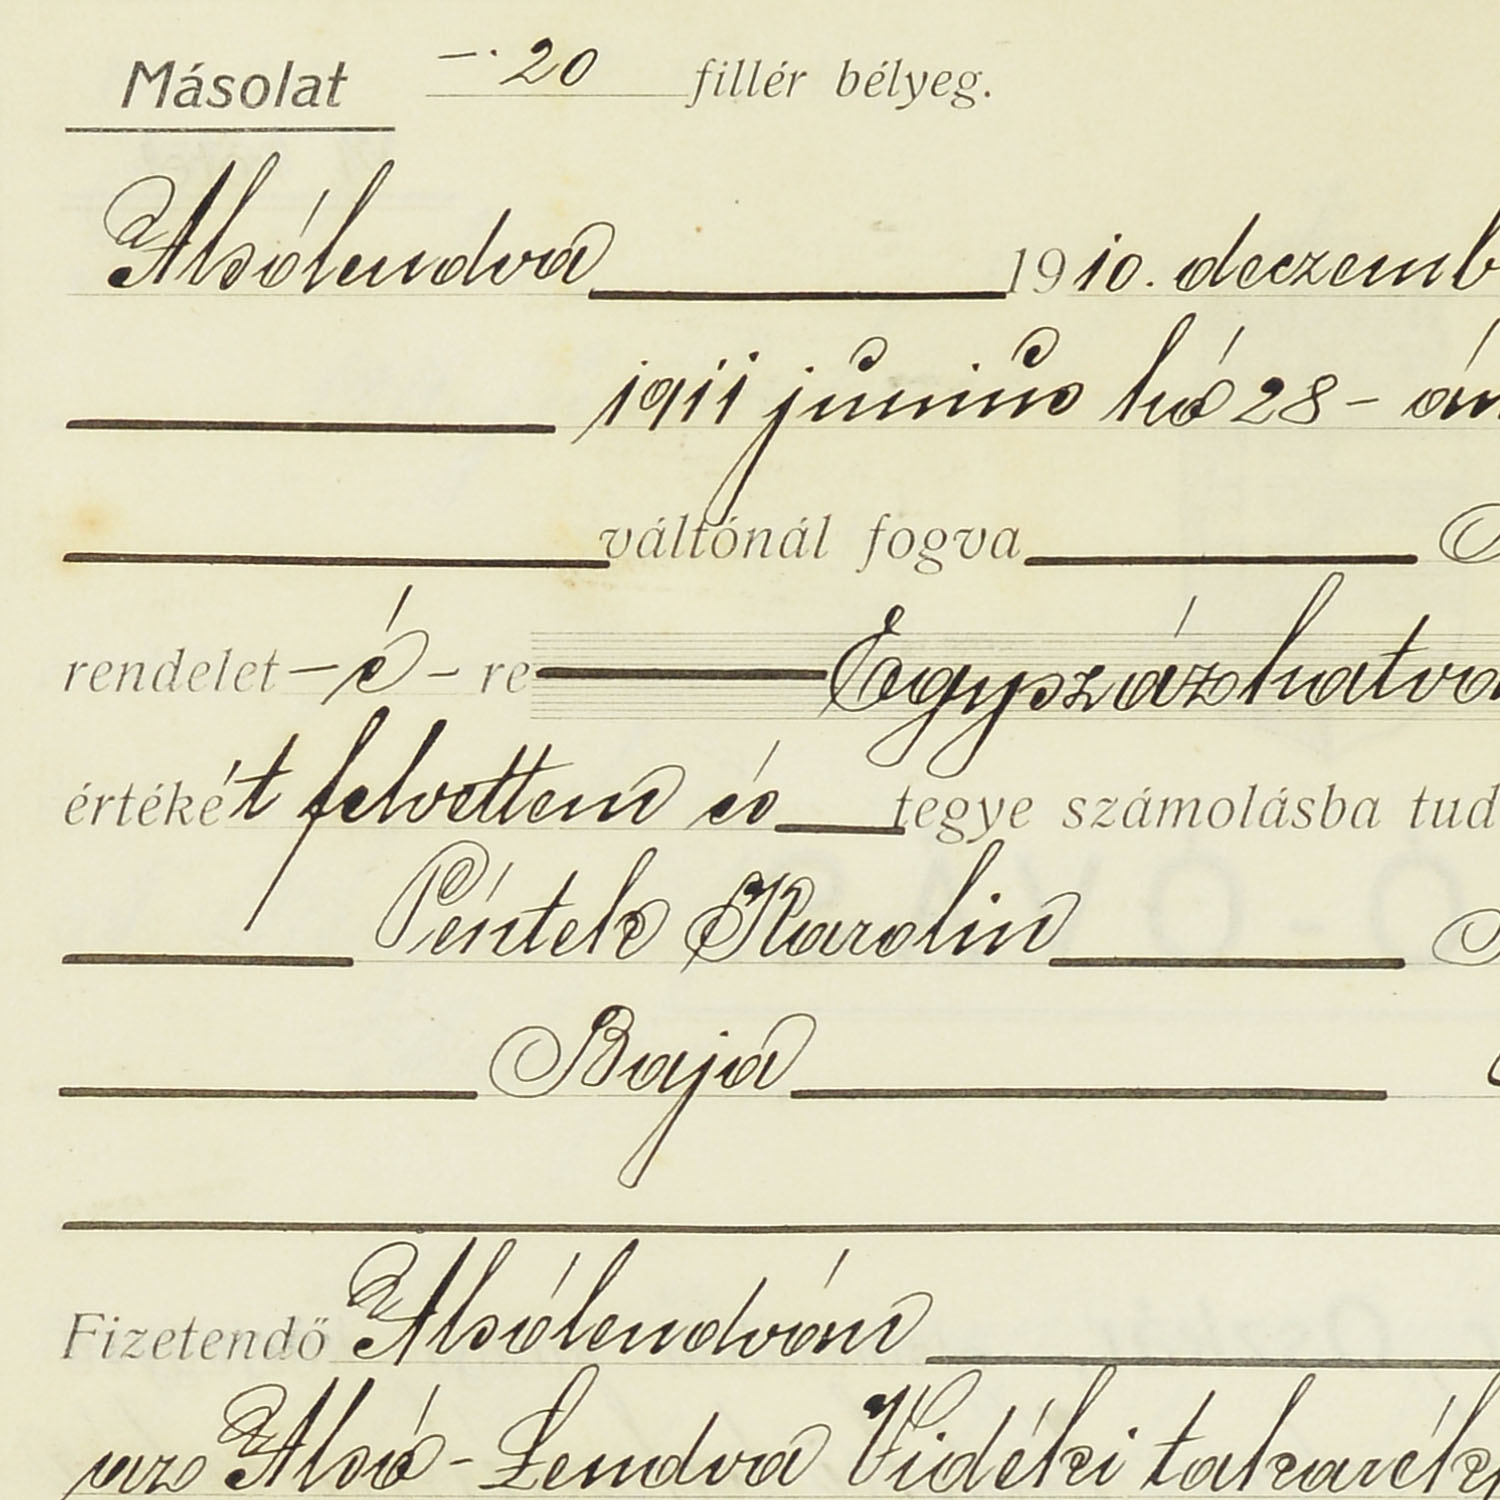 Másolat —. 20 fillér bélyeg.
Alsólendva 1910. deczemb
1911 június hó 28 - án
váltónál fogva
rendelet — é - re Egyszázhatva
értékét felvettem és tegye számolásba tud
Péntek Karolin
Baja
Fizetendő Alsólendván
az Alsó-Lendva Vidéki takarék